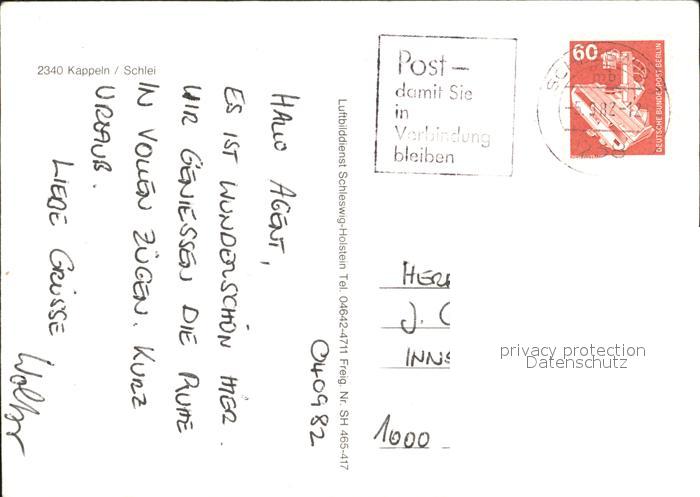 2340 Kappeln / Schlei
040982
HALLO AGENT,
ES IST WUNDERSCHÖN HIER.
WIR GENIESSEN DIE RUHE
IN VOLLEN ZÜGEN. KURZ
URLAUB.
LIEBE GRÜSSE
Luftbilddienst Schleswig-Holstein Tel. 04642-4711 Freig. Nr. SH 465-417
Post–
damit Sie
in
Verbindung
bleiben
60
DEUTSCHE BUNDESPOST BERLIN
mb
HER
J.
INNS
1000
privacy protection
Datenschutz